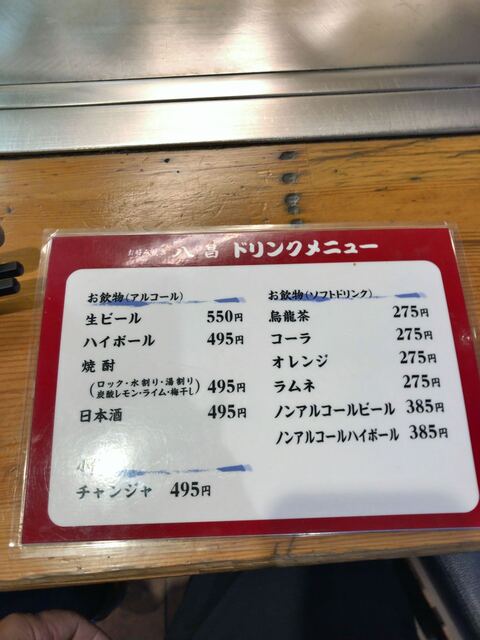 お好み焼き 八昌 ドリンクメニュー
お飲物(アルコール)
生ビール 550円
ハイボール 495円
焼酎
(ロック・水割り・湯割り
炭酸レモン・ライム・梅干し) 495円
日本酒 495円
小
チャンジャ 495円
お飲物(ソフトドリンク)
烏龍茶 275円
コーラ 275円
オレンジ 275円
ラムネ 275円
ノンアルコールビール 385円
ノンアルコールハイボール 385円